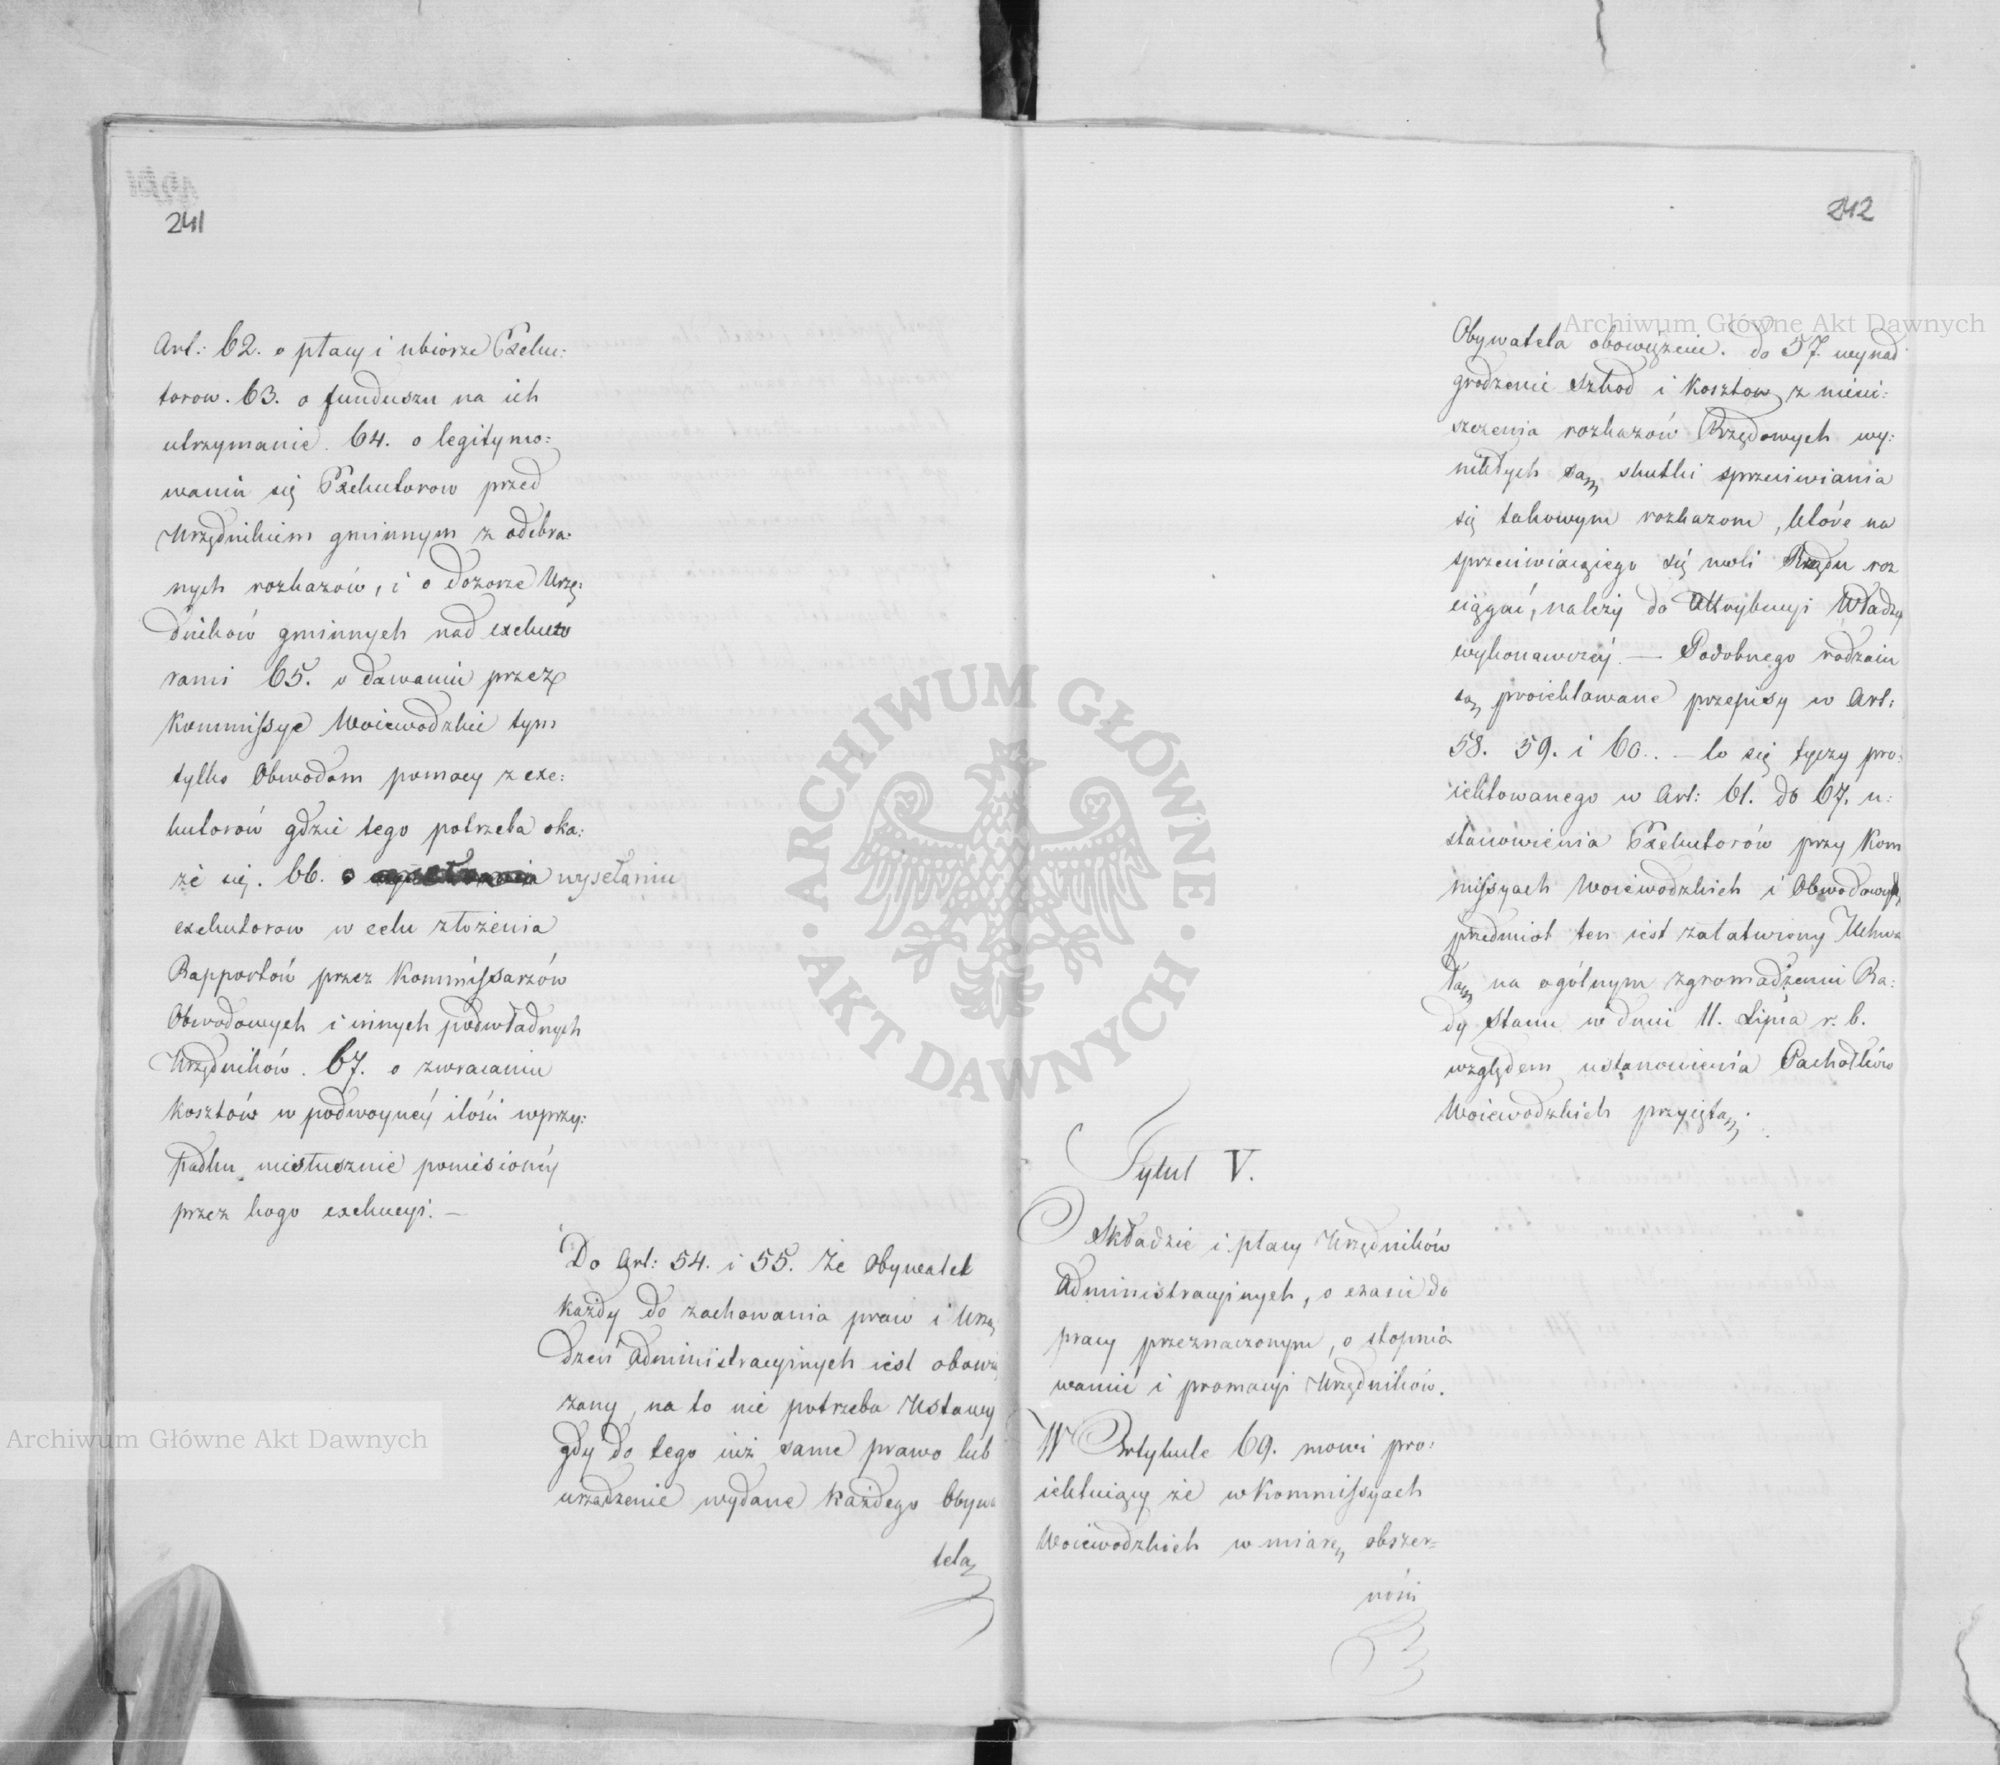 241
Art: 62. o płacy i ubiorze Exeku:
torow. 63. o funduszu na ich
utrzymanie. 64. o legitymo:
waniu się Exekutorow przed
Urzędnikiem gminnym z odebra:
nych rozkazów, i o dozorze Urzę:
dników gminnych nad exekuto
rami 65. o dawaniu przez
Kommissye Woiewodzkie tym
tylko Obwodom pomocy z exe:
kutorów gdzie tego potrzeba oka:
że się. 66. o wysełaniu
exekutorow w celu złożenia
Rapportów przez Kommissarzów
Obwodowych i innych podwładnych
Urzędników. 67. o zwracaniu
kosztów w podwoyney ilości w przy:
padku niesłusznie poniesioney
przez kogo exekucyi. —
Do Art: 54. i 55. Że Obywatel
każdy do zachowania praw i Urzą
dzeń administracyinych iest obowią
zany, na to nie potrzeba Ustawy
gdy do tego iuż same prawo lub
urządzenie wydane każdego Obywa
tela
242
Obywatela obowiąże. do 57. wynad
grodzenie szkod i kosztow z nieui:
szczenia rozkazów Rządowych wy:
nikłych są skutki sprzeciwiania
się takowym rozkazom, które na
sprzeciwiaiącego się woli Rządu roz
ciągać, należy do Attrybucyi Władzy
wykonawczéy. — Podobnego rodzaiu
są proiektowane przepisy w Art:
58. 59. i 60. — Co się tyczy pro:
iektowanego w Art: 61. do 67. u:
stanowienia Exekutorów przy Kom
missyach Woiewodzkich i Obwodowych,
przedmiot ten iest załatwiony Uchwa
łą na ogólnym zgromadzeniu Ra:
dy Stanu w dniu 11. Lipca r. b.
względem ustanowienia Pachołków
Woiewodzkich przyiętą.
Tytuł V.
O Składzie i płacy Urzędników
Administracyinych, o czasie do
pracy przeznaczonym, o stopnio
waniu i promocyi Urzędników.
W Artykule 69. mowi pro:
iektuiący że w Kommissyach
Woiewodzkich w miarę obszer=
ności
Archiwum Główne Akt Dawnych
Archiwum Główne Akt Dawnych
· ARCHIWUM GŁÓWNE · AKT DAWNYCH